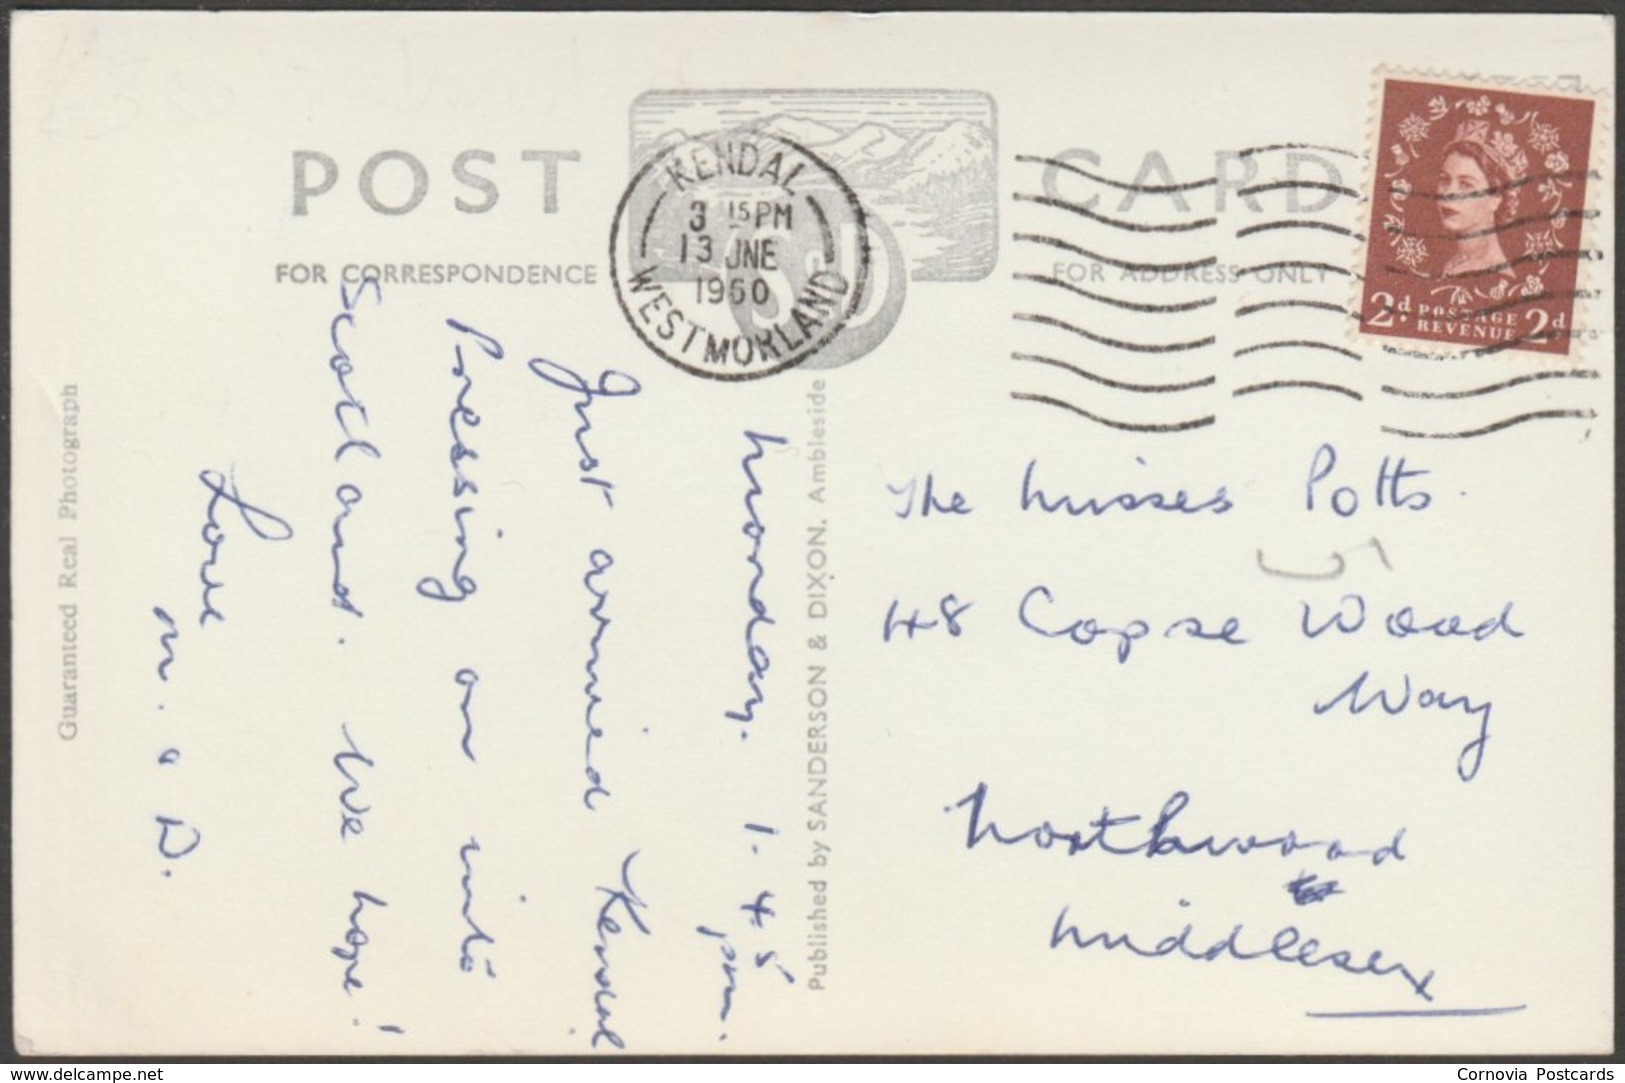 POST CARD
FOR CORRESPONDENCE
FOR ADDRESS ONLY
KENDAL
3 15 PM
13 JNE
1960
WESTMORLAND
2d. POSTAGE REVENUE 2d
Monday. 1.45
pm.
Just arrived Kendal
Pressing on into
Scotland. We hope!
Love
M. & D.
The Misses Potts.
48 Copse Wood
Way
Northwood
Middlesex
Published by SANDERSON & DIXON, Ambleside
Guaranteed Real Photograph
www.delcampe.net
Cornovia Postcards